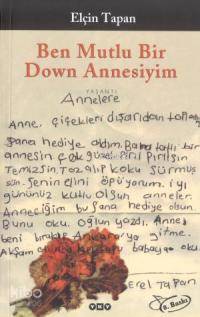 Elçin Tapan
Ben Mutlu Bir
Down Annesiyim
YAŞANTI
Annelere
Anne, çiçekleri dışarıdan
Sana hediye aldım. Bana tatlı bir
annesin çok güzel Pırıl Pırılsın
Temizsin. Tez alıp koku sürmüş
sün. Senin elini öpüyorum. iyi
gününüz kutlu olsun anneler.
Anneciğim bu sana hediye olsun.
Bunu oku. Oğlun yazdı. Anne
beni bırakıp Ankara'ya gitme.
Akşam babaya oku.
Erel Tapan
YKY
8. Baskı